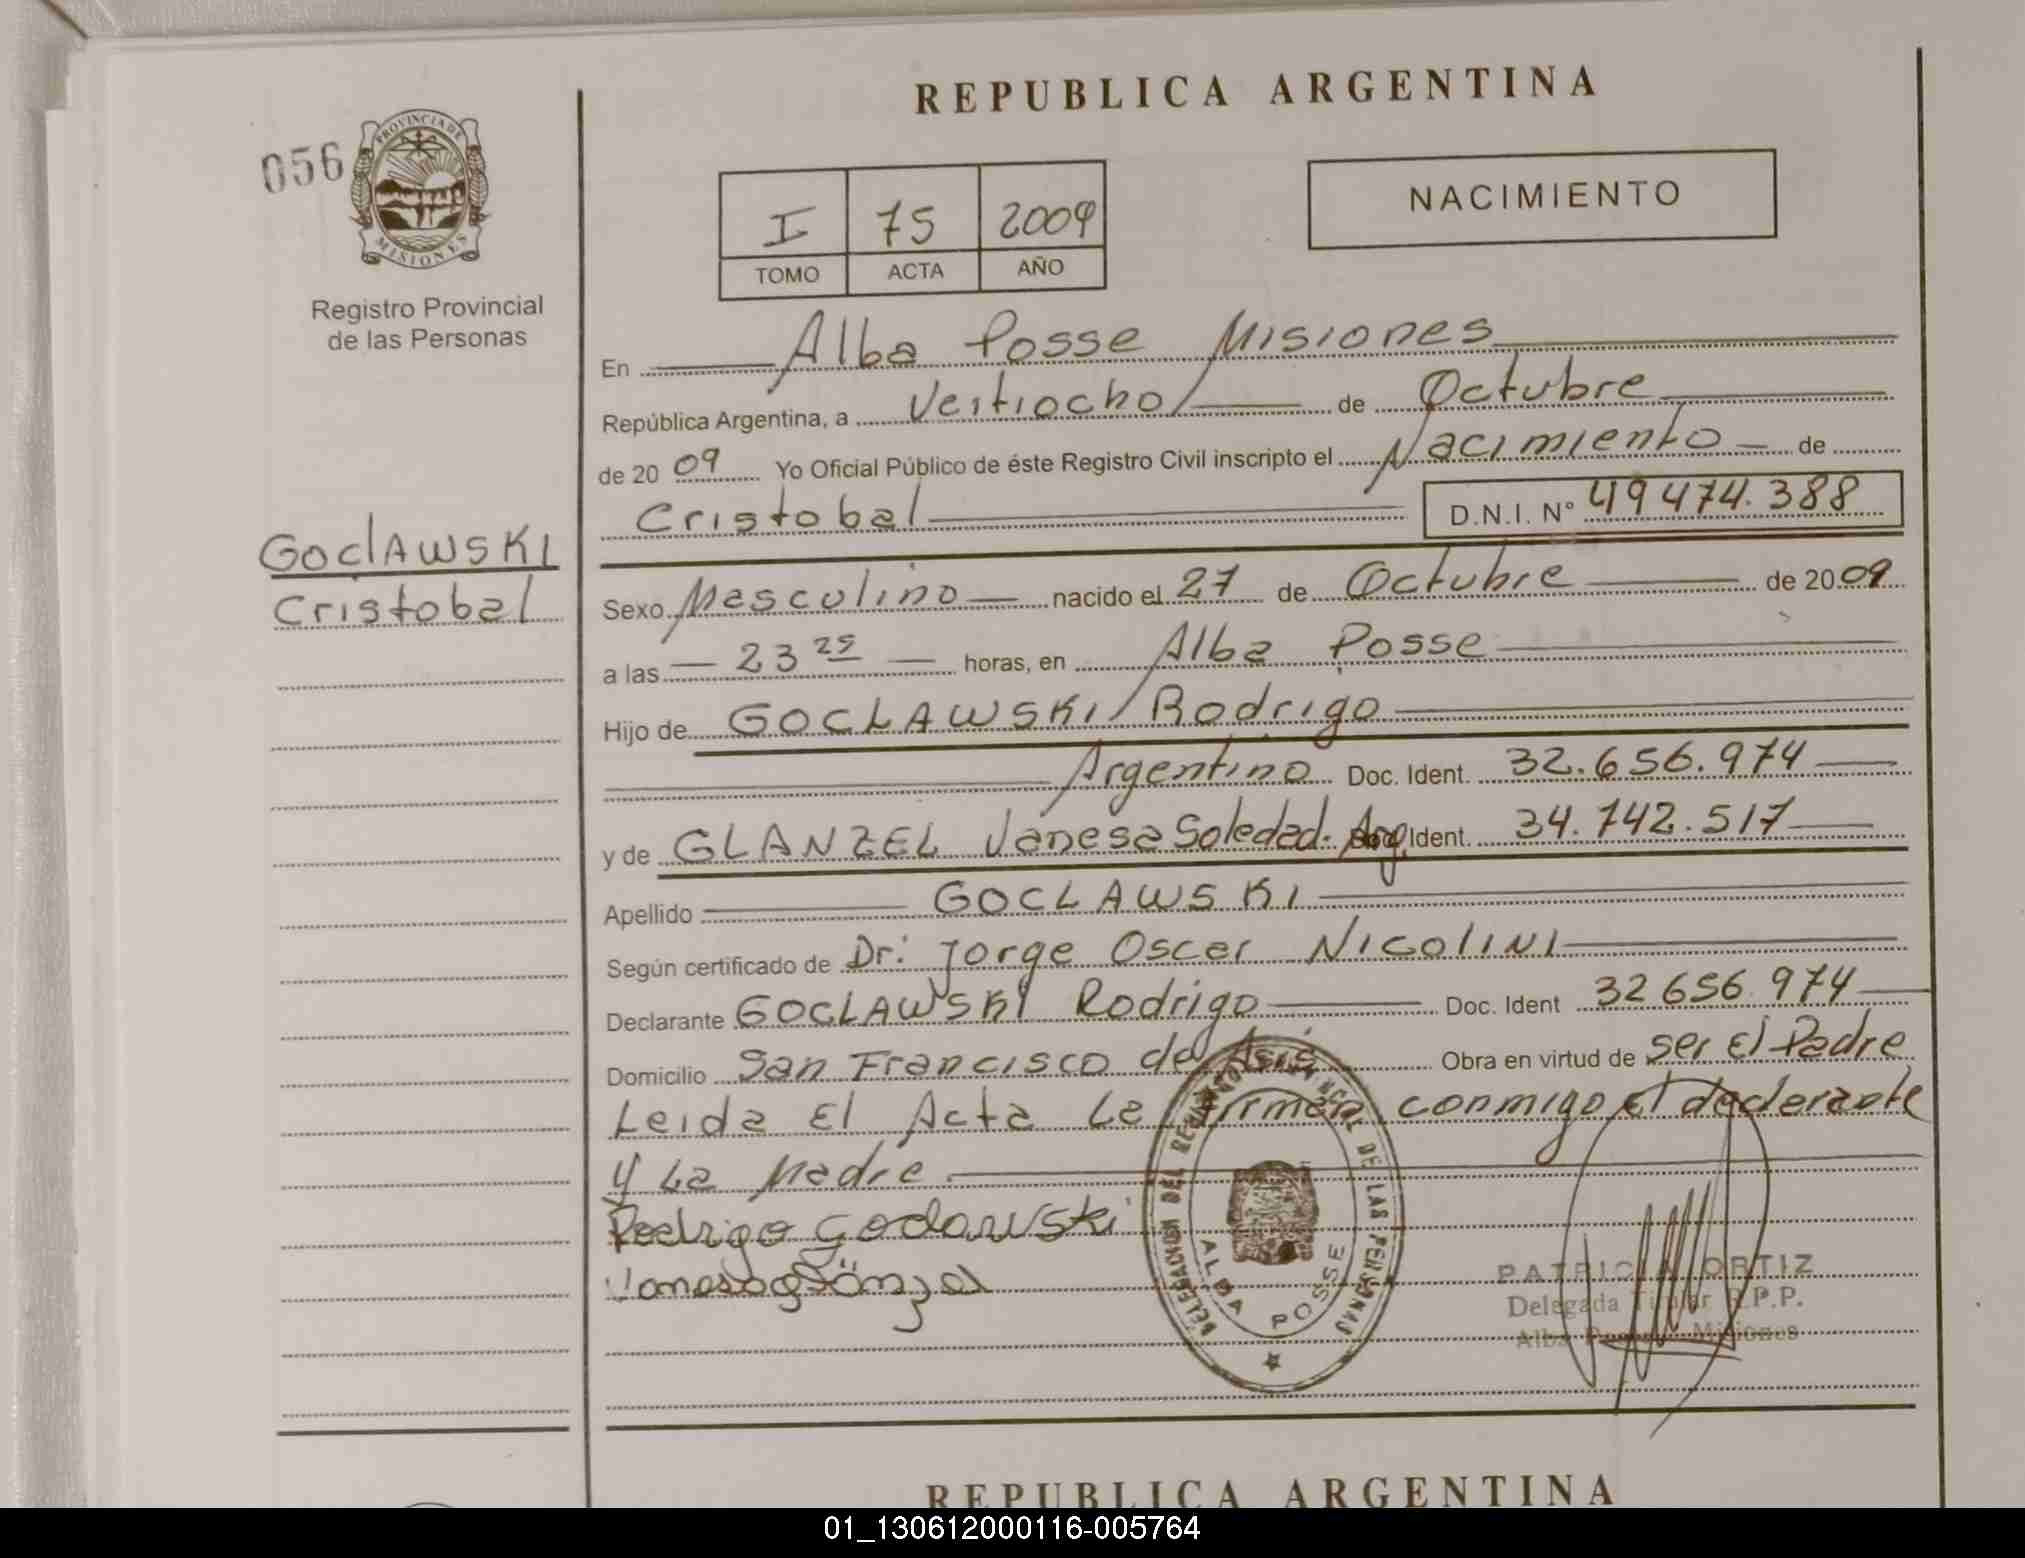 REPUBLICA ARGENTINA
056
PROVINCIA DE
MISIONES
Registro Provincial
de las Personas
NACIMIENTO
I 75 2009
TOMO ACTA AÑO
En Alba Posse Misiones
República Argentina, a Veitiocho de Octubre
de 2009 Yo Oficial Público de éste Registro Civil inscripto el Nacimiento de
Cristobal D.N.I. N° 49474.388
GOCLAWSKI
Cristobal
Sexo Masculino nacido el 27 de Octubre de 2009
a las 23 25 horas, en Alba Posse
Hijo de GOCLAWSKI Rodrigo
Argentino Doc. Ident. 32.656.974
y de GLANZEL Vanesa Soledad. Arg. Ident. 34.742.517
Apellido GOCLAWSKI
Según certificado de Dr: Jorge Oscar NICOLINI
Declarante GOCLAWSKI Rodrigo Doc. Ident 32656.974
Domicilio San Francisco de Asis Obra en virtud de ser El Padre
Leida El Acta La Firman conmigo el declarante
y La Madre
Rodrigo Goclawski
Vanesa Glänzel
DELEGACION DEL REGISTRO PROVINCIAL DE LAS PERSONAS
ALBA POSSE
PATRICIA ORTIZ
Delegada Titular R.P.P.
Alba Posse Misiones
REPUBLICA ARGENTINA
01_130612000116-005764